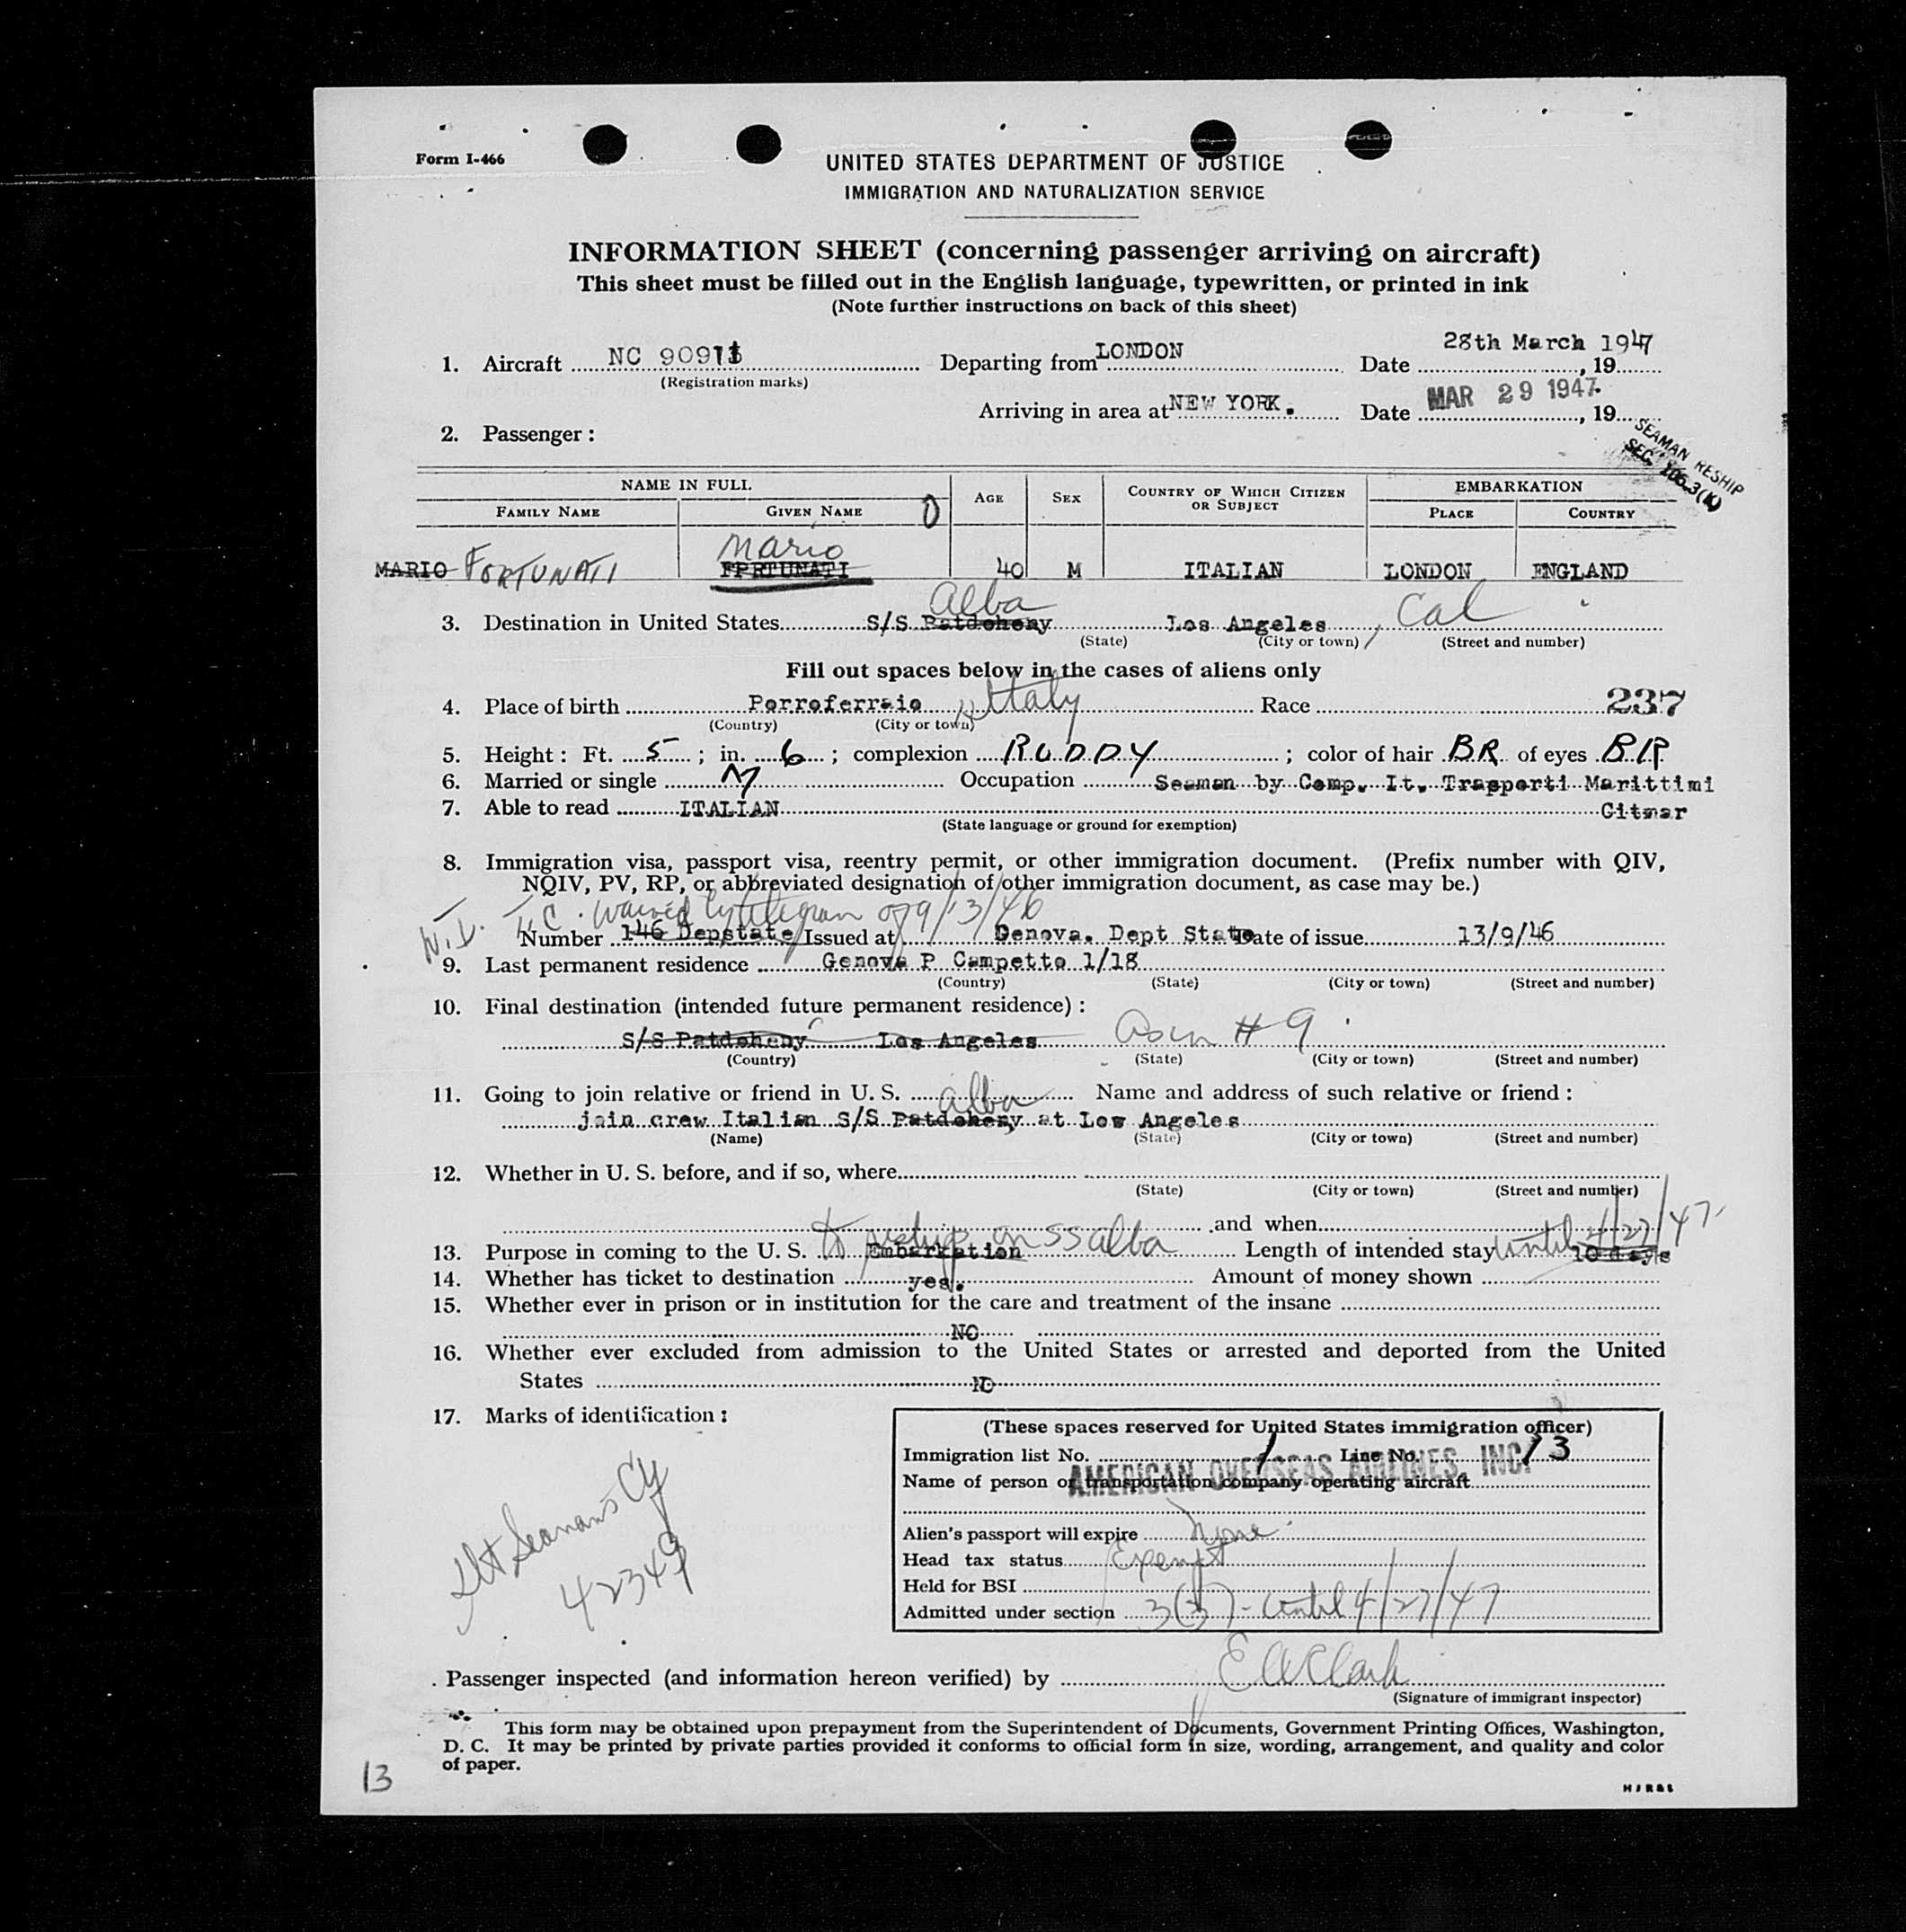 Form I-466
UNITED STATES DEPARTMENT OF JUSTICE
IMMIGRATION AND NATURALIZATION SERVICE
INFORMATION SHEET (concerning passenger arriving on aircraft)
This sheet must be filled out in the English language, typewritten, or printed in ink
(Note further instructions on back of this sheet)
28th March 1947
1. Aircraft NC Departing from LONDON Date , 19
(Registration marks)
Arriving in area at NEW YORK. Date MAR 29 1947 , 19
2. Passenger :
SEAMAN RESHIP
SEC.
NAME IN FULL AGE SEX COUNTRY OF WHICH CITIZEN OR SUBJECT EMBARKATION
FAMILY NAME GIVEN NAME PLACE COUNTRY
Mario
MARIO FORTUNATI FPRTUNATI 40 M ITALIAN LONDON ENGLAND
Alba
3. Destination in United States S/S Patdoheny Los Angeles, Cal
(State) (City or town) (Street and number)
Fill out spaces below in the cases of aliens only
4. Place of birth Porroferraio Italy Race 237
(Country) (City or town)
5. Height : Ft. 5 ; in. 6 ; complexion RUDDY ; color of hair BR of eyes BR
6. Married or single M Occupation Seaman by Comp. It. Trasporti Marittimi
7. Able to read ITALIAN Citmar
(State language or ground for exemption)
8. Immigration visa, passport visa, reentry permit, or other immigration document. (Prefix number with QIV,
NQIV, PV, RP, or abbreviated designation of other immigration document, as case may be.)
waived by telegram of 9/13/46
Number 146 Depstate Issued at Genova. Dept State Date of issue 13/9/46
9. Last permanent residence Genova P Campetto 1/18
(Country) (State) (City or town) (Street and number)
10. Final destination (intended future permanent residence) :
S/S Patdoheny Los Angeles # 9
(Country) (State) (City or town) (Street and number)
11. Going to join relative or friend in U. S. Alba Name and address of such relative or friend :
join crew Italian S/S Patdoheny at Los Angeles
(Name) (State) (City or town) (Street and number)
12. Whether in U. S. before, and if so, where
(State) (City or town) (Street and number)
and when
to reship on SS Alba until 4/27/47
13. Purpose in coming to the U. S. Embarkation Length of intended stay 10 days
14. Whether has ticket to destination yes. Amount of money shown
15. Whether ever in prison or in institution for the care and treatment of the insane
NO
16. Whether ever excluded from admission to the United States or arrested and deported from the United
States NO
17. Marks of identification :
(These spaces reserved for United States immigration officer)
Immigration list No. 1 Line No. 13
AMERICAN OVERSEAS AIRLINES, INC.
Name of person or transportation company operating aircraft
Alien's passport will expire None
Head tax status Exempt
Held for BSI
Admitted under section 3(3) - until 4/27/47
Seamans
42349
Passenger inspected (and information hereon verified) by E A Clark
(Signature of immigrant inspector)
This form may be obtained upon prepayment from the Superintendent of Documents, Government Printing Offices, Washington,
D. C. It may be printed by private parties provided it conforms to official form in size, wording, arrangement, and quality and color
of paper.
13